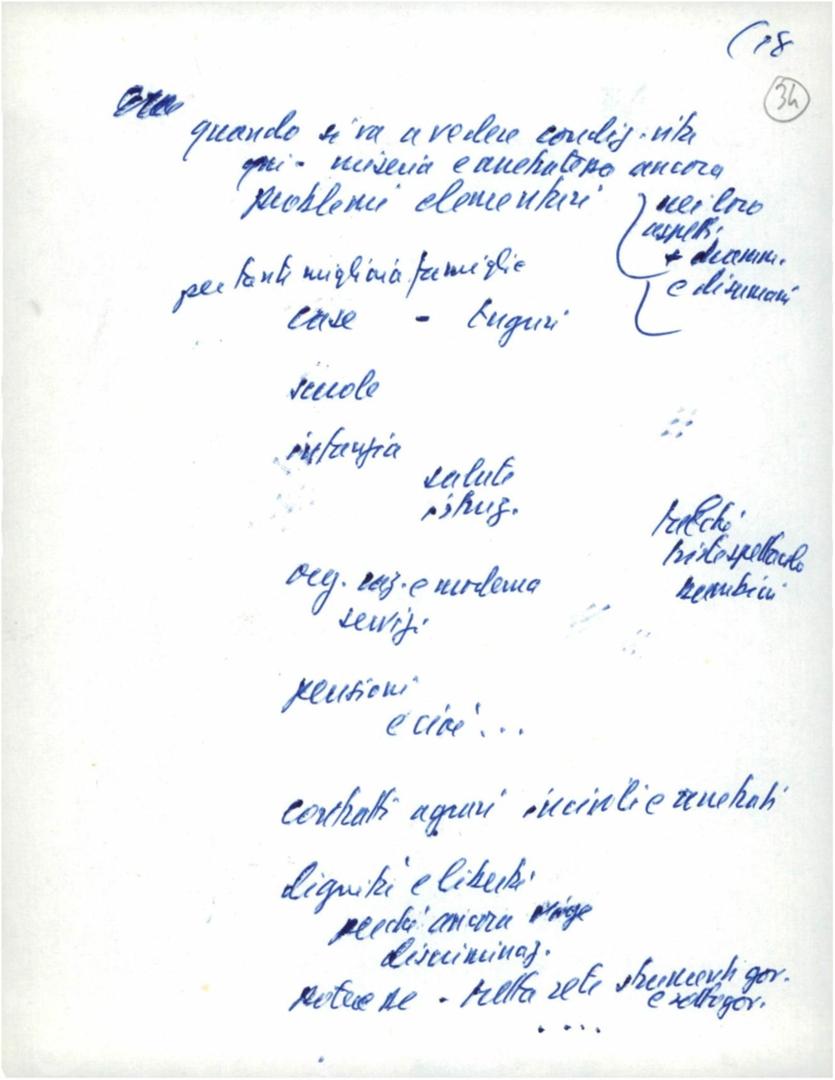 (18
34
quando si va a vedere condiz. vita
qui - miseria e arretratezza ancora
problemi elementari
nei loro
aspetti
+ dramm.
e disumani
per tanti migliaia famiglie
case - tuguri
scuole
infanzia
salute
istruz.
triste spettacolo
bambini
org. raz. e moderna
servizi
pensioni
e cioè ...
contratti agrari incivili e arretrati
dignità e libertà
perché ancora vige
discriminaz.
potere DC - fitta rete strumenti gov.
e sottogov.
....